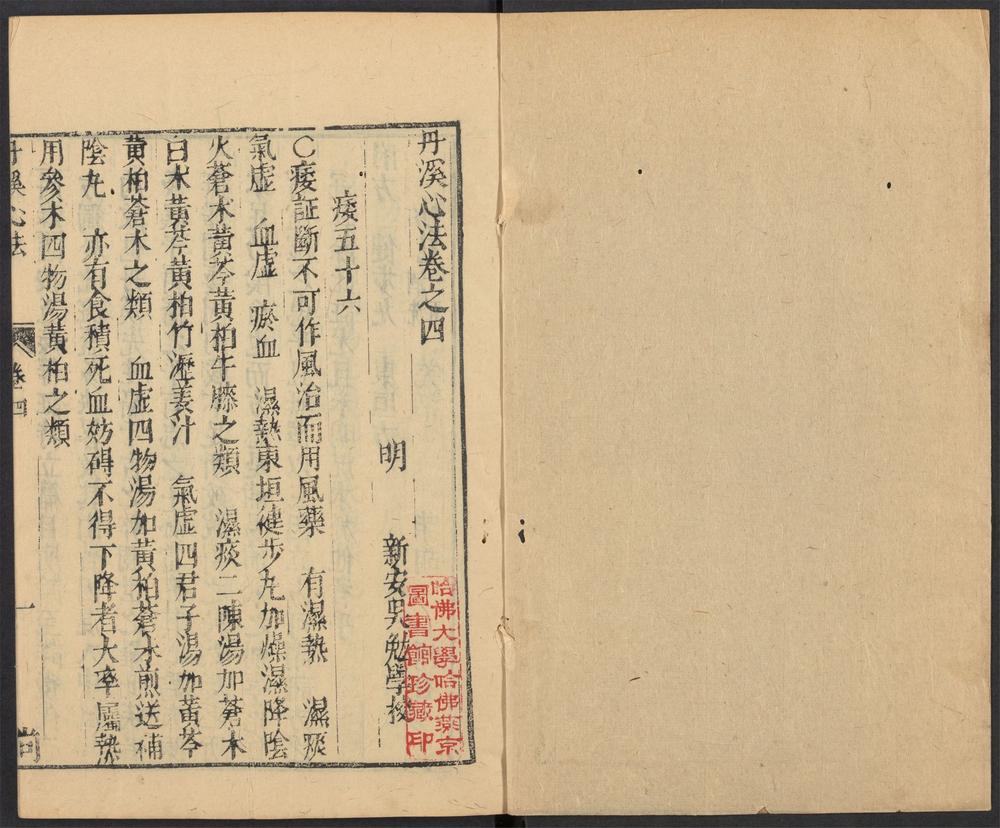 丹溪心法卷之四
明　新安吳勉學校
痿五十六
○痿証斷不可作風治而用風藥　有濕熱　濕痰
氣虛　血虛　瘀血　濕熱東垣健步丸加燥濕降陰
火蒼朮黃芩黃柏牛膝之類　濕痰二陳湯加蒼朮
白朮黃芩黃柏竹瀝姜汁　氣虛四君子湯加黃芩
黃柏蒼朮之類　血虛四物湯加黃柏蒼朮煎送補
陰丸　亦有食積死血妨碍不得下降者大率屬熱
用參朮四物湯黃柏之類
丹溪心法　卷四　一
哈佛大學哈佛燕京
圖書館珍藏印